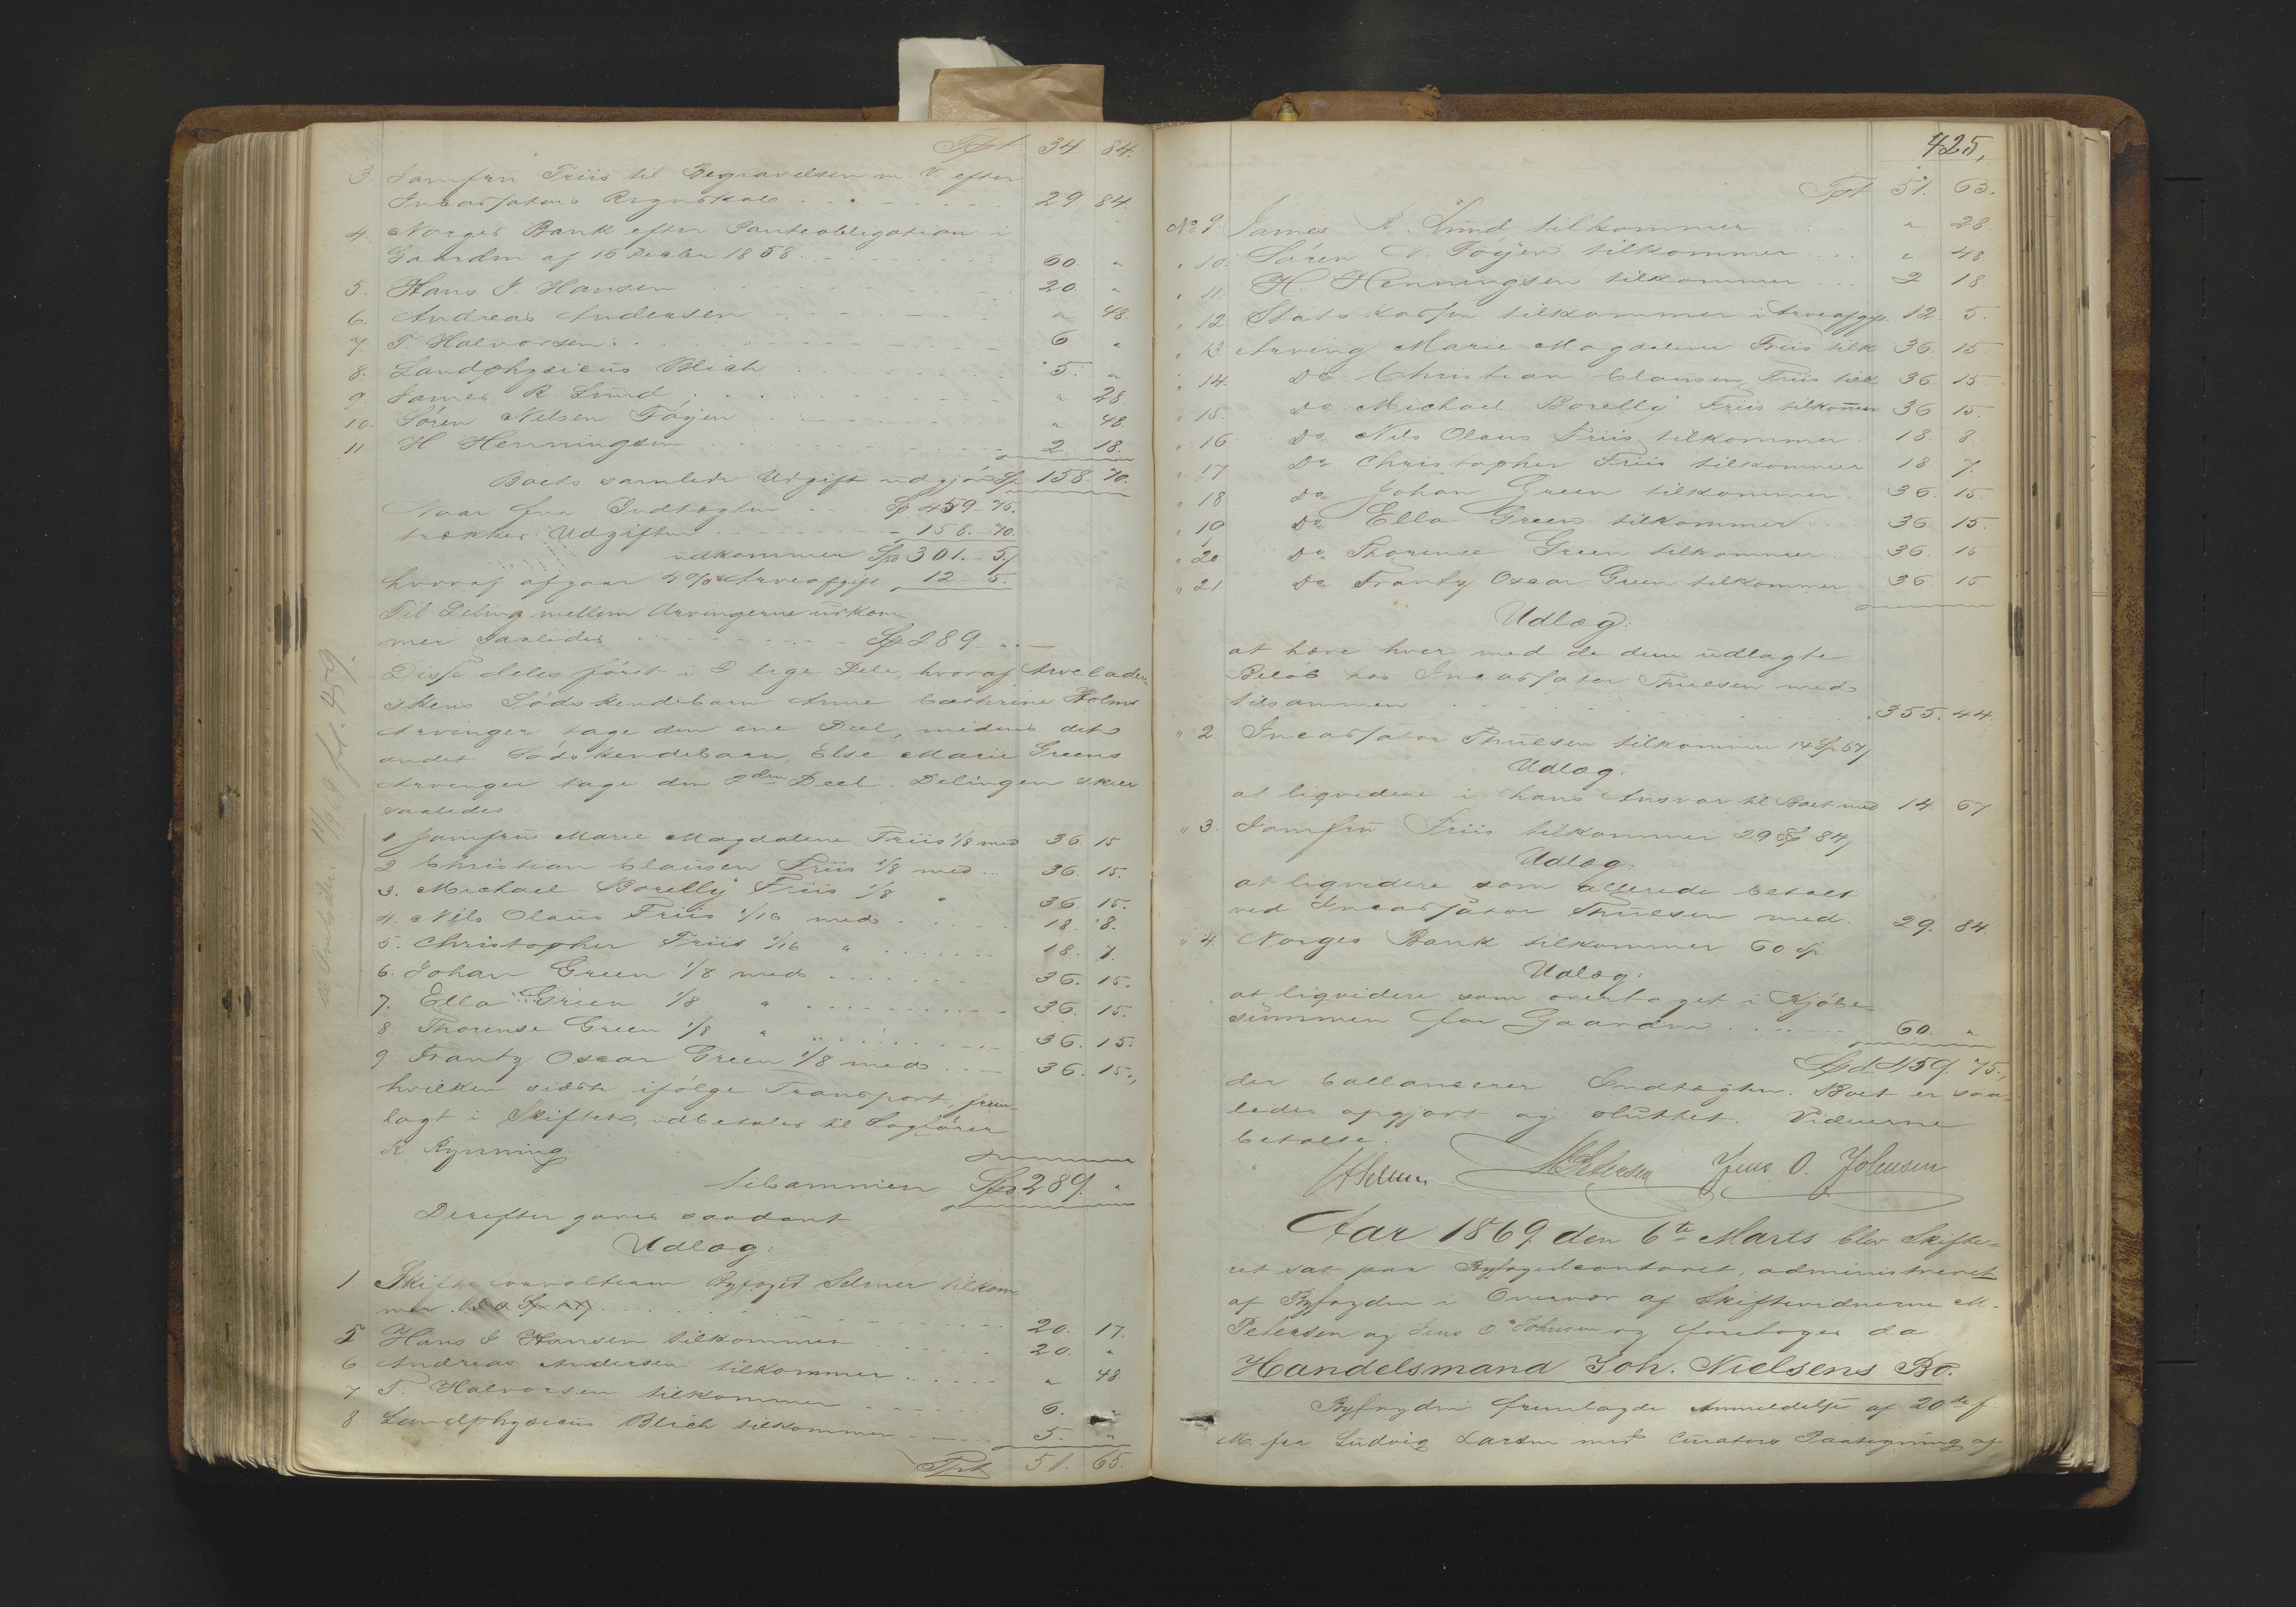 Tpt 34. 84.
3. Jomfru Friis til Begravelsen m. V. efter
Incassators Regnskab 29. 84.
4. Norges Bank efter Panteobligation i
Gaarden af 16 Decbr 1858. 60. "
5. Hans J. Hansen 20. "
6. Andreas Andersen " 48.
7. T. Halvorsen. 6. "
8. Landphysicus Blich 5. "
9. James R Lund " 28.
10. Sören Nilsen Töyen " 48.
11 H Henningsen 2. 18.
Boets samlede Udgift udgjör Sp 158 70.
Naar fra Indtægten Sp 459 75.
trækkes Udgiften 158. 70.
udkommer Spd 301. 5./
hvoraf afgaar 4% Arveafgift 12 5.
Til Deling mellem Arvingerne udkom-
mer saaledes Sp 289 "
Disse deles först i 2 lige Dele, hvoraf Arvelader-
skens Södskendebarn Anne Cathrine Holms
Arvinger tage den ene Deel, medens det
andet Södskendebarn, Else Marie Greens
Arvinger tage den 2den Deel. Delingen skeer
saaledes:
1 Jomfru Marie Magdalene Friis 1/8 med 36. 15
2 Christian Clausen Friis 1/8 med 36. 15.
3. Michael Borelly Friis 1/8 " 36. 15.
4. Nils Olaus Friis 1/16 med 18. 8.
5. Christopher Friis 1/16 " 18. 7.
6. Johan Green 1/8 med 36. 15.
7. Ella Green 1/8 " 36. 15.
8. Thorense Green 1/8 " 36. 15.
9 Frantz Oscar Green 1/8 med 36. 15.,
hvilken sidste ifölge Transport, frem-
lagt i Skiftet, udbetales til Sagförer
K. Rynning.
tilsammen Spd 289. "
Derefter gaves saadant
Udlæg:
1. Skifteforvalteren Byfoged Selmer tilkom-
mer 20. 17.
5 Hans J Hansen tilkommer 20. "
6 Andreas Andersen tilkommer " 48
7 T. Halvorsen tilkommer 6. "
8 Landphysicus Blich tilkommer 5. "
Tpt 51. 65.
11/3 69 fol. 459.
425,
Tpt 51. 65.
No 9 James R. Lund tilkommer " 28
" 10. Sören N. Töyen tilkommer " 48
" 11. H Henningsen tilkommer 2 18
" 12. Stats kassen tilkommer i Arveafgift 12. 5.
" 13 Arving Marie Magdalene Friis tilk 36 15
" 14. Do Christian Clausen Friis tilk 36 15
" 15. Do Michael Borelly Friis tilkommer 36 15.
" 16 Do Nils Olaus Friis tilkommer 18. 8
" 17 Do Christopher Friis tilkommer 18. 7.
" 18 Do Johan Green tilkommer 36. 15.
" 19 Do Ella Green tilkommer 36 15.
" 20 Do Thorense Green tilkommer 36. 15
" 21 Do Frantz Oscar Green tilkommer 36. 15
Udlæg:
at hæve hver med de dem udlagte
Belöb hos Incassator Thuesen med
tilsammen 355. 44.
" 2. Incassator Thuesen tilkommer 14 Sp 67/
Udlæg:
at liqvidere i hans Ansvar til Boet med 14 67
" 3. Jomfru Friis tilkommer 29 Sp 84/
Udlæg:
at liqvidere som allerede betalt
ved Incassator Thuesen med 29. 84
" 4. Norges Bank tilkommer 60 Sp
Udlæg:
at liqvidere som overtaget i Kjöbe-
summen for Gaarden 60. "
Spd 459. 75.,
der ballancerer Indtægten. Boet er saa-
ledes opgjort og sluttet. Vidnerne
betalte.
ASelmer. MPetersen Jens O. Johnsen
Aar 1869 den 6te Marts blev Skifte-
ret sat paa Byfogedcontoret, administreret
af Byfogden i Overvær af Skiftevidnerne M.
Petersen og Jens O Johnsen og foretoges da
Handelsmand Joh. Nielsens Bo.
Byfogden fremlagde Anmeldelse af 20de f.
M. fra Ludvig Larsen med Curators Paategning af